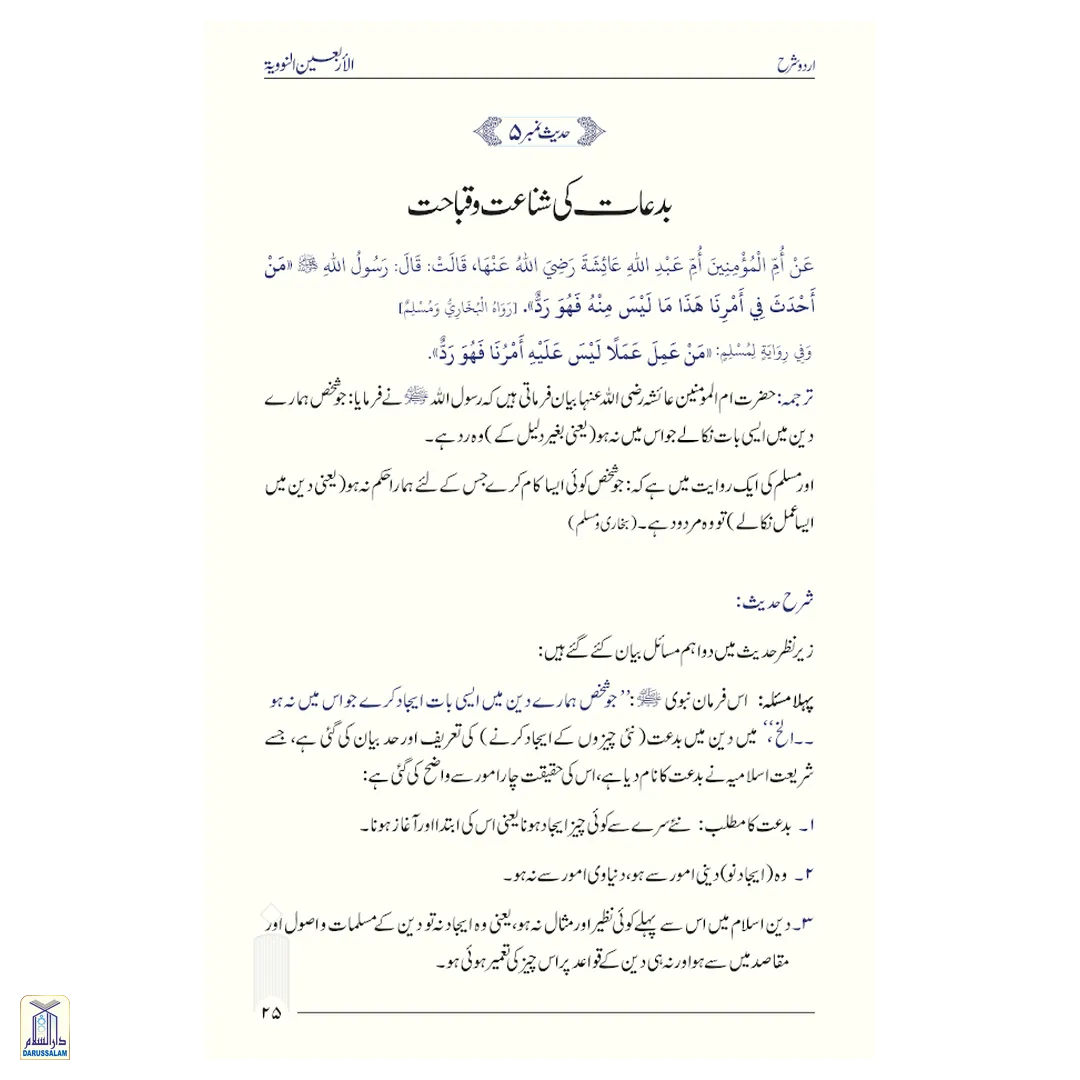 اردو شرح
الأربعين النووية
حدیث نمبر ۵
بدعات کی شناعت و قباحت
عَنْ أُمِّ الْمُؤْمِنِينَ أُمِّ عَبْدِ اللهِ عَائِشَةَ رَضِيَ اللهُ عَنْهَا، قَالَتْ: قَالَ: رَسُولُ اللهِ ﷺ «مَنْ
أَحْدَثَ فِي أَمْرِنَا هَذَا مَا لَيْسَ مِنْهُ فَهُوَ رَدٌّ». [رَوَاهُ الْبُخَارِيُّ وَمُسْلِمٌ]
وَفِي رِوَايَةٍ لِمُسْلِمٍ: «مَنْ عَمِلَ عَمَلًا لَيْسَ عَلَيْهِ أَمْرُنَا فَهُوَ رَدٌّ».
ترجمہ: حضرت ام المومنین عائشہ رضی اللہ عنہا بیان فرماتی ہیں کہ رسول اللہ ﷺ نے فرمایا: جو شخص ہمارے
دین میں ایسی بات نکالے جو اس میں نہ ہو (یعنی بغیر دلیل کے) وہ رد ہے۔
اور مسلم کی ایک روایت میں ہے کہ: جو شخص کوئی ایسا کام کرے جس کے لئے ہمارا حکم نہ ہو (یعنی دین میں
ایسا عمل نکالے) تو وہ مردود ہے۔ (بخاری و مسلم)
شرح حدیث:
زیر نظر حدیث میں دو اہم مسائل بیان کئے گئے ہیں:
پہلا مسئلہ: اس فرمان نبوی ﷺ: ’’جو شخص ہمارے دین میں ایسی بات ایجاد کرے جو اس میں نہ ہو
۔۔الخ‘‘، میں دین میں بدعت (نئی چیزوں کے ایجاد کرنے) کی تعریف اور حد بیان کی گئی ہے، جسے
شریعت اسلامیہ نے بدعت کا نام دیا ہے، اس کی حقیقت چار امور سے واضح کی گئی ہے:
۱۔ بدعت کا مطلب: نئے سرے سے کوئی چیز ایجاد ہونا یعنی اس کی ابتدا اور آغاز ہونا۔
۲۔ وہ (ایجاد نو) دینی امور سے ہو، دنیاوی امور سے نہ ہو۔
۳۔ دین اسلام میں اس سے پہلے کوئی نظیر اور مثال نہ ہو، یعنی وہ ایجاد نہ تو دین کے مسلمات و اصول اور
مقاصد میں سے ہو اور نہ ہی دین کے قواعد پر اس چیز کی تعمیر ہوئی ہو۔
۲۵
دارالسلام
DARUSSALAM